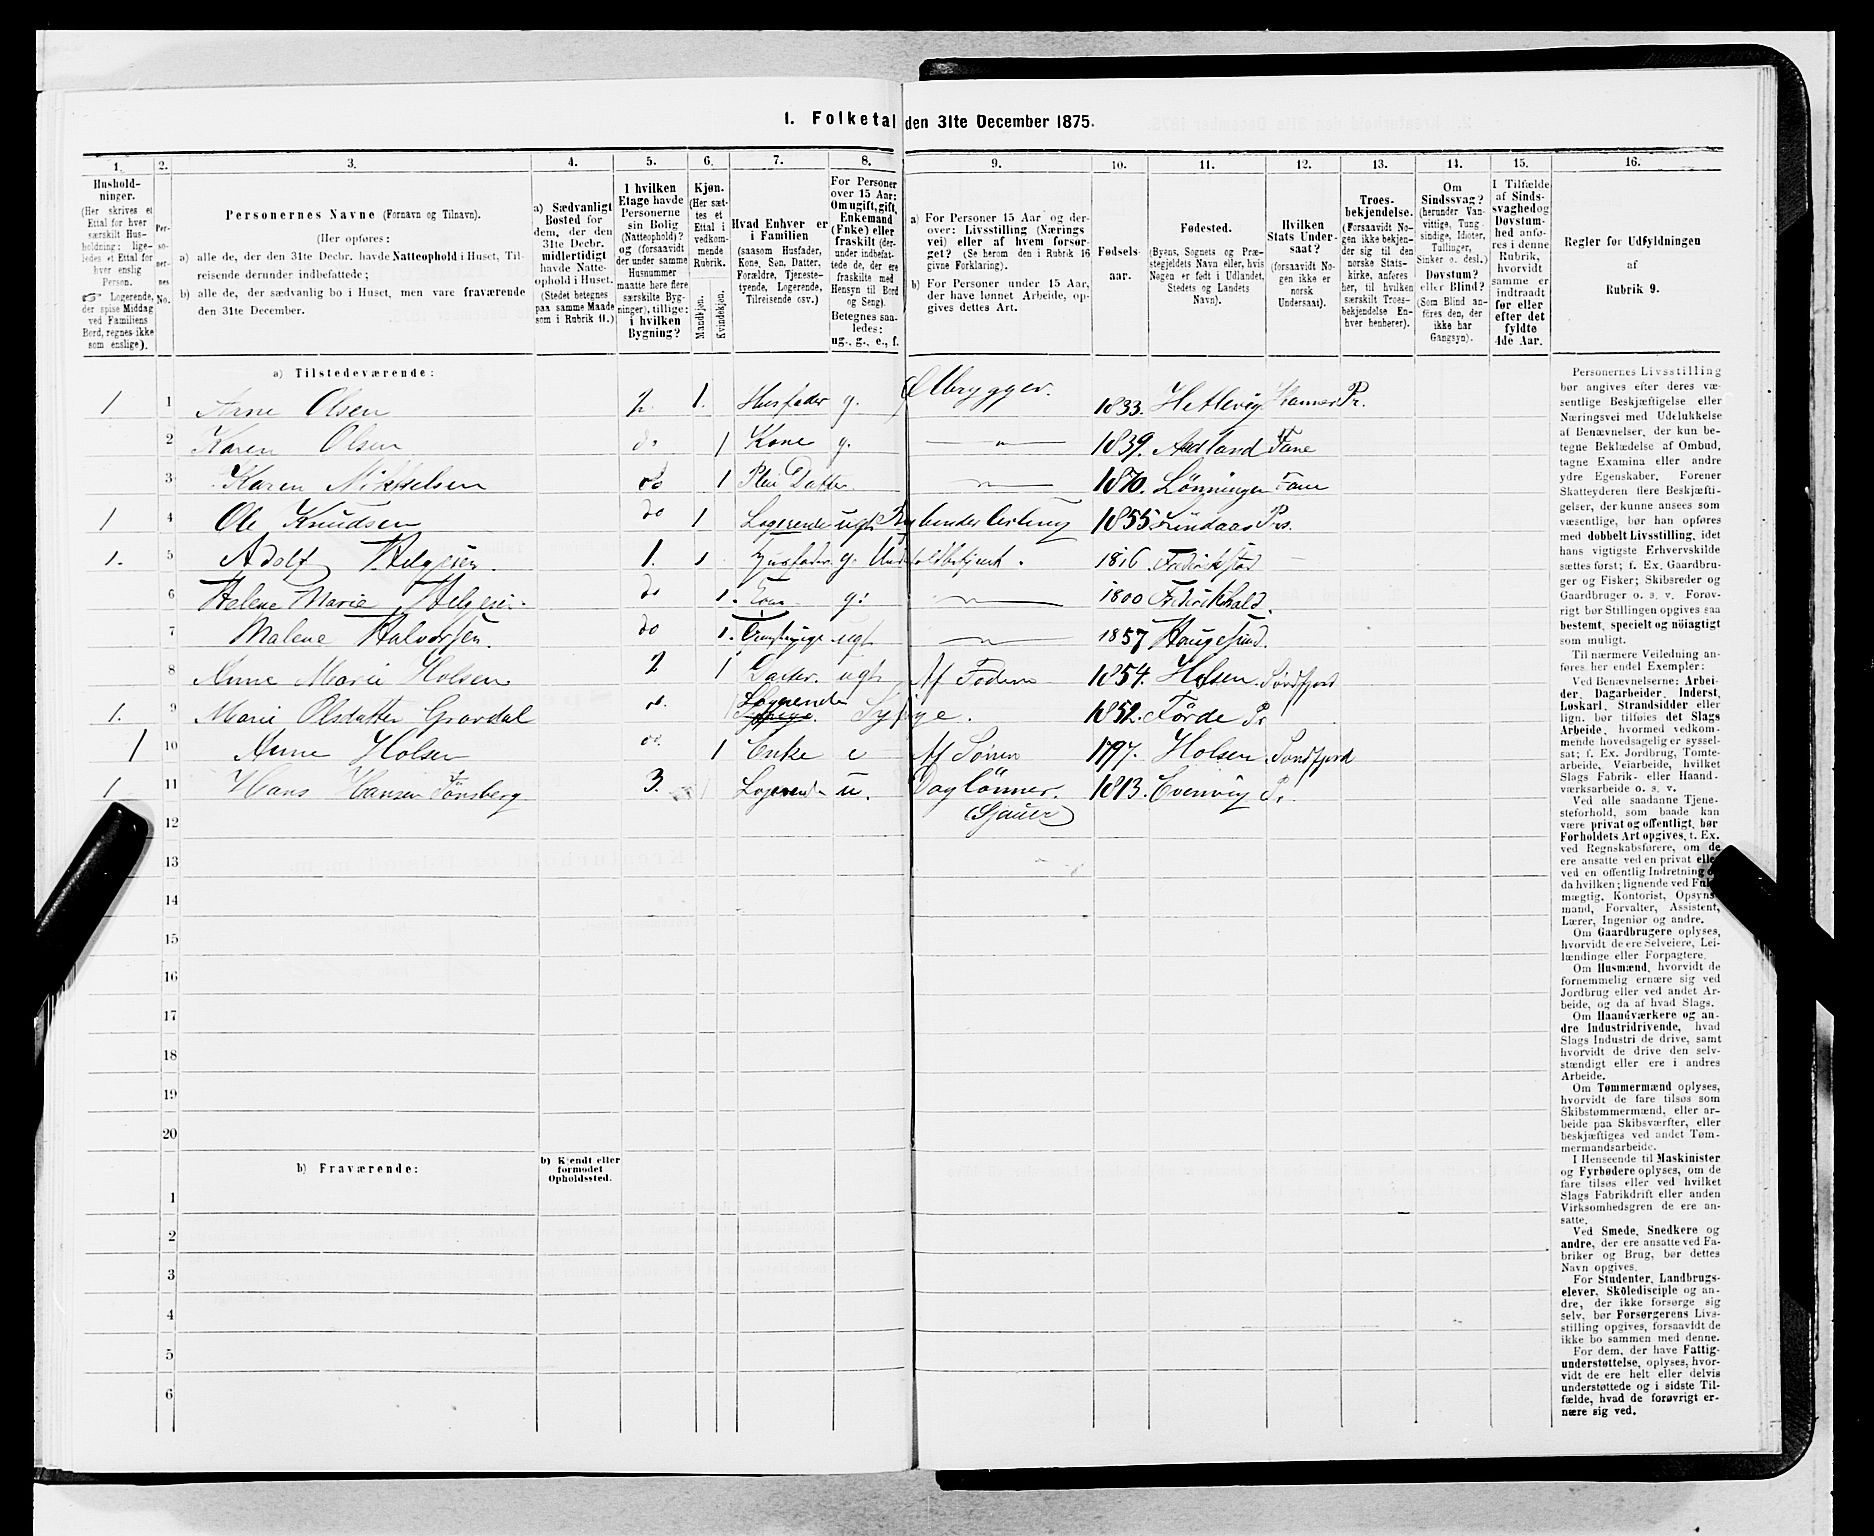 1. Folketal den 31te December 1875.
1. 2. 3. 4. 5. 6. 7. 8. 9. 10. 11. 12. 13. 14. 15. 16.
Hushold-
ninger.
(Her skrives et
Ettal for hver
særskilt Hus-
holdning; lige-
ledes et Ettal for
hver enslig
Person.
☞ Logerende,
der spise Middag
ved Familiens
Bord, regnes ikke
som enslige).
Per-
so-
ner-
nes
No.
Personernes Navne (Fornavn og Tilnavn).
(Her opføres:
a) alle de, der den 31te Decbr. havde Natteophold i Huset, Til-
reisende derunder indbefattede;
b) alle de, der sædvanlig bo i Huset, men vare fraværende
den 31te December.
a) Sædvanligt
Bosted for
dem, der den
31te Decbr.
midlertidigt
havde Natte-
ophold i Huset.
(Stedet betegnes
paa samme Maade
som i Rubrik 11.)
I hvilken
Etage havde
Personerne
sin Bolig
(Natteophold)?
og (forsaavidt
der under samme
Husnummer
maatte høre flere
særskilte Byg-
ninger), tillige:
i hvilken
Bygning?
Kjøn.
(Her sæt-
tes et
Ettal i
vedkom-
mende
Rubrik.
Mandkjøn.
Kvindekjøn.
Hvad Enhver er
i Familien
(saasom Husfader,
Kone, Søn, Datter,
Forældre, Tjeneste-
tyende, Logerende,
Tilreisende osv.)
For Personer
over 15 Aar:
Om ugift, gift,
Enkemand
(Enke) eller
fraskilt (der-
under indbefat-
tede de, der ere
fraskilte med
Hensyn til Bord
og Seng).
Betegnes saa-
ledes:
ug., g., e., f.
a) For Personer 15 Aar og der-
over: Livsstilling (Nærings
vei) eller af hvem forsør-
get? (Se herom den i Rubrik 16
givne Forklaring).
b) For Personer under 15 Aar,
der have lønnet Arbeide, op-
gives dettes Art.
Fødsels-
aar.
Fødested.
(Byens, Sognets og Præ-
stegjeldets Navn eller, hvis
Nogen er født i Udlandet,
Stedets og Landets
Navn).
Hvilken
Stats Under-
saat?
(forsaavidt No-
gen ikke er
norsk
Undersaat).
Troes-
bekjendelse.
(Forsaavidt No-
gen ikke bekjen-
der sig til den
norske Stats-
kirke, anføres
her, til hvilken
særskilt Troes-
bekjendelse En-
hver henhører).
Om
Sindssvag?
(herunder Van-
vittige, Tung-
sindige, Idioter,
Tullinger,
Sinker o. desl.)
Døvstum?
eller Blind?
(Som Blind an-
føres den, der
ikke har
Gangsyn).
I Tilfælde
af Sinds-
svaghed og
Døvstum-
hed anfø-
res i denne
Rubrik,
hvorvidt
samme er
indtraadt
før eller
efter det
fyldte
4de Aar.
Regler for Udfyldningen
af
Rubrik 9.
a) Tilstedeværende:
1 1 Arne Olsen 2. 1. Husfader g. Ølbrygger. 1833. Hetlevig Hammer Pr.
2 Karen Olsen do 1 Kone g. — " — 1839. Aadland Fane
3 Karen Nikkelsen do 1 Plei Datter — " — 1870. Lønningen Fane
1 4 Ole Knudsen do 1 Logerende ugt 1855 Lindaas Prs.
1. 5 Adolf Helgesen. 1. 1 Husfader g. 1816 Fredrikstad —
6 Helene Marie Helgesen. do 1. Kone g. — " — 1800 Fredrikhald.
7 Malene Halvorsen. do 1. ugt — " — 1857 Haugesund.
8 Anne Marie Holsen 2 1 Datter. ugt Af Foderen 1854. Holsen. Søndfjord
1. 9 Marie Olsdatter Gravdal do. 1 Logerende Sypige. Sypige. 1852. Førde Pr
1 10 Anne Holsen do. 1 Enke e Af Sønnen 1797. Holsen Søndfjord
1 11 Hans Hansen Tønsberg 3. 1 Logerende u. Daglønner. 1813. Evenvig Pr.
12 (Sjauer)
13
14
15
16
17
18
19
20
b) Fraværende:
b) Kjendt eller
formodet
Opholdssted.
1
2
3
4
5
6
Personernes Livsstilling
bør angives efter deres væ-
sentlige Beskjæftigelse eller
Næringsvei med Udelukkelse
af Benævnelser, der kun be-
tegne Beklædelse af Ombud,
tagne Examina eller andre
ydre Egenskaber. Forener
Skatteyderen flere Beskjæfti-
gelser, der kunne ansees som
væsentlige, bør han opføres
med dobbelt Livsstilling, idet
hans vigtigste Erhvervskilde
sættes først; f. Ex. Gaardbru-
ger og Fisker; Skibsreder og
Gaardbruger o. s. v. Forøv-
rigt bør Stillingen opgives saa
bestemt, specielt og nöiagtigt
som muligt.
Til nærmere Veiledning an-
føres her endel Exempler:
Ved Benævnelserne: Arbei-
der, Dagarbeider, Inderst,
Løskarl, Strandsidder eller
lign. bør tilføies det Slags
Arbeide, hvormed vedkom-
mende hovedsagelig er syssel-
sat; f. Ex. Jordbrug, Tomte-
arbeide, Veiarbeide, hvilket
Slags Fabrik- eller Haand-
værksarbeide o. s. v.
Ved alle saadanne Tjene-
steforhold, som baade kan
være privat og offentligt, bør
Forholdets Art opgives, t. Ex.
ved Regnskabsførere, om de
ere ansatte ved en privat eller
ved en offentlig Indretning og
da hvilken; lignende ved Fuld-
mægtig, Kontorist, Opsyns-
mand, Forvalter, Assistent,
Lærer, Ingeniør og andre.
Om Gaardbrugere oplyses,
hvorvidt de ere Selveiere, Lei-
lændinge eller Forpagtere.
Om Husmænd, hvorvidt de
fornemmelig ernære sig ved
Jordbrug eller ved andet Ar-
beide, og da af hvad Slags.
Om Haandværkere og an-
dre Industridrivende, hvad
Slags Industri de drive, samt
hvorvidt de drive den selv-
stændigt eller ere i andres
Arbeide.
Om Tømmermænd oplyses,
hvorvidt de fare tilsøs som
Skibstømmermænd, eller ar-
beide paa Skibsværfter, eller
beskjæftiges ved andet Tøm-
mermandsarbeide.
I Henseende til Maskinister
og Fyrbødere oplyses, om de
fare tilsøs eller ved hvilket
Slags Fabrikdrift eller anden
Virksomhedsgren de ere an-
satte.
Ved Smede, Snedkere og
andre, der ere ansatte ved Fa-
briker og Brug, bør dettes
Navn opgives.
For Studenter, Landbrugs-
elever, Skoledisciple og an-
dre, der ikke forsørge sig
selv, bør Forsørgerens Livs-
stilling opgives, forsaavidt de
ikke bo sammen med denne.
For dem, der have Fattig-
understøttelse, oplyses, hvor-
vidt de ere helt eller delvis
understøttede og i sidste Til-
fælde, hvad de forøvrigt er-
nære sig ved.